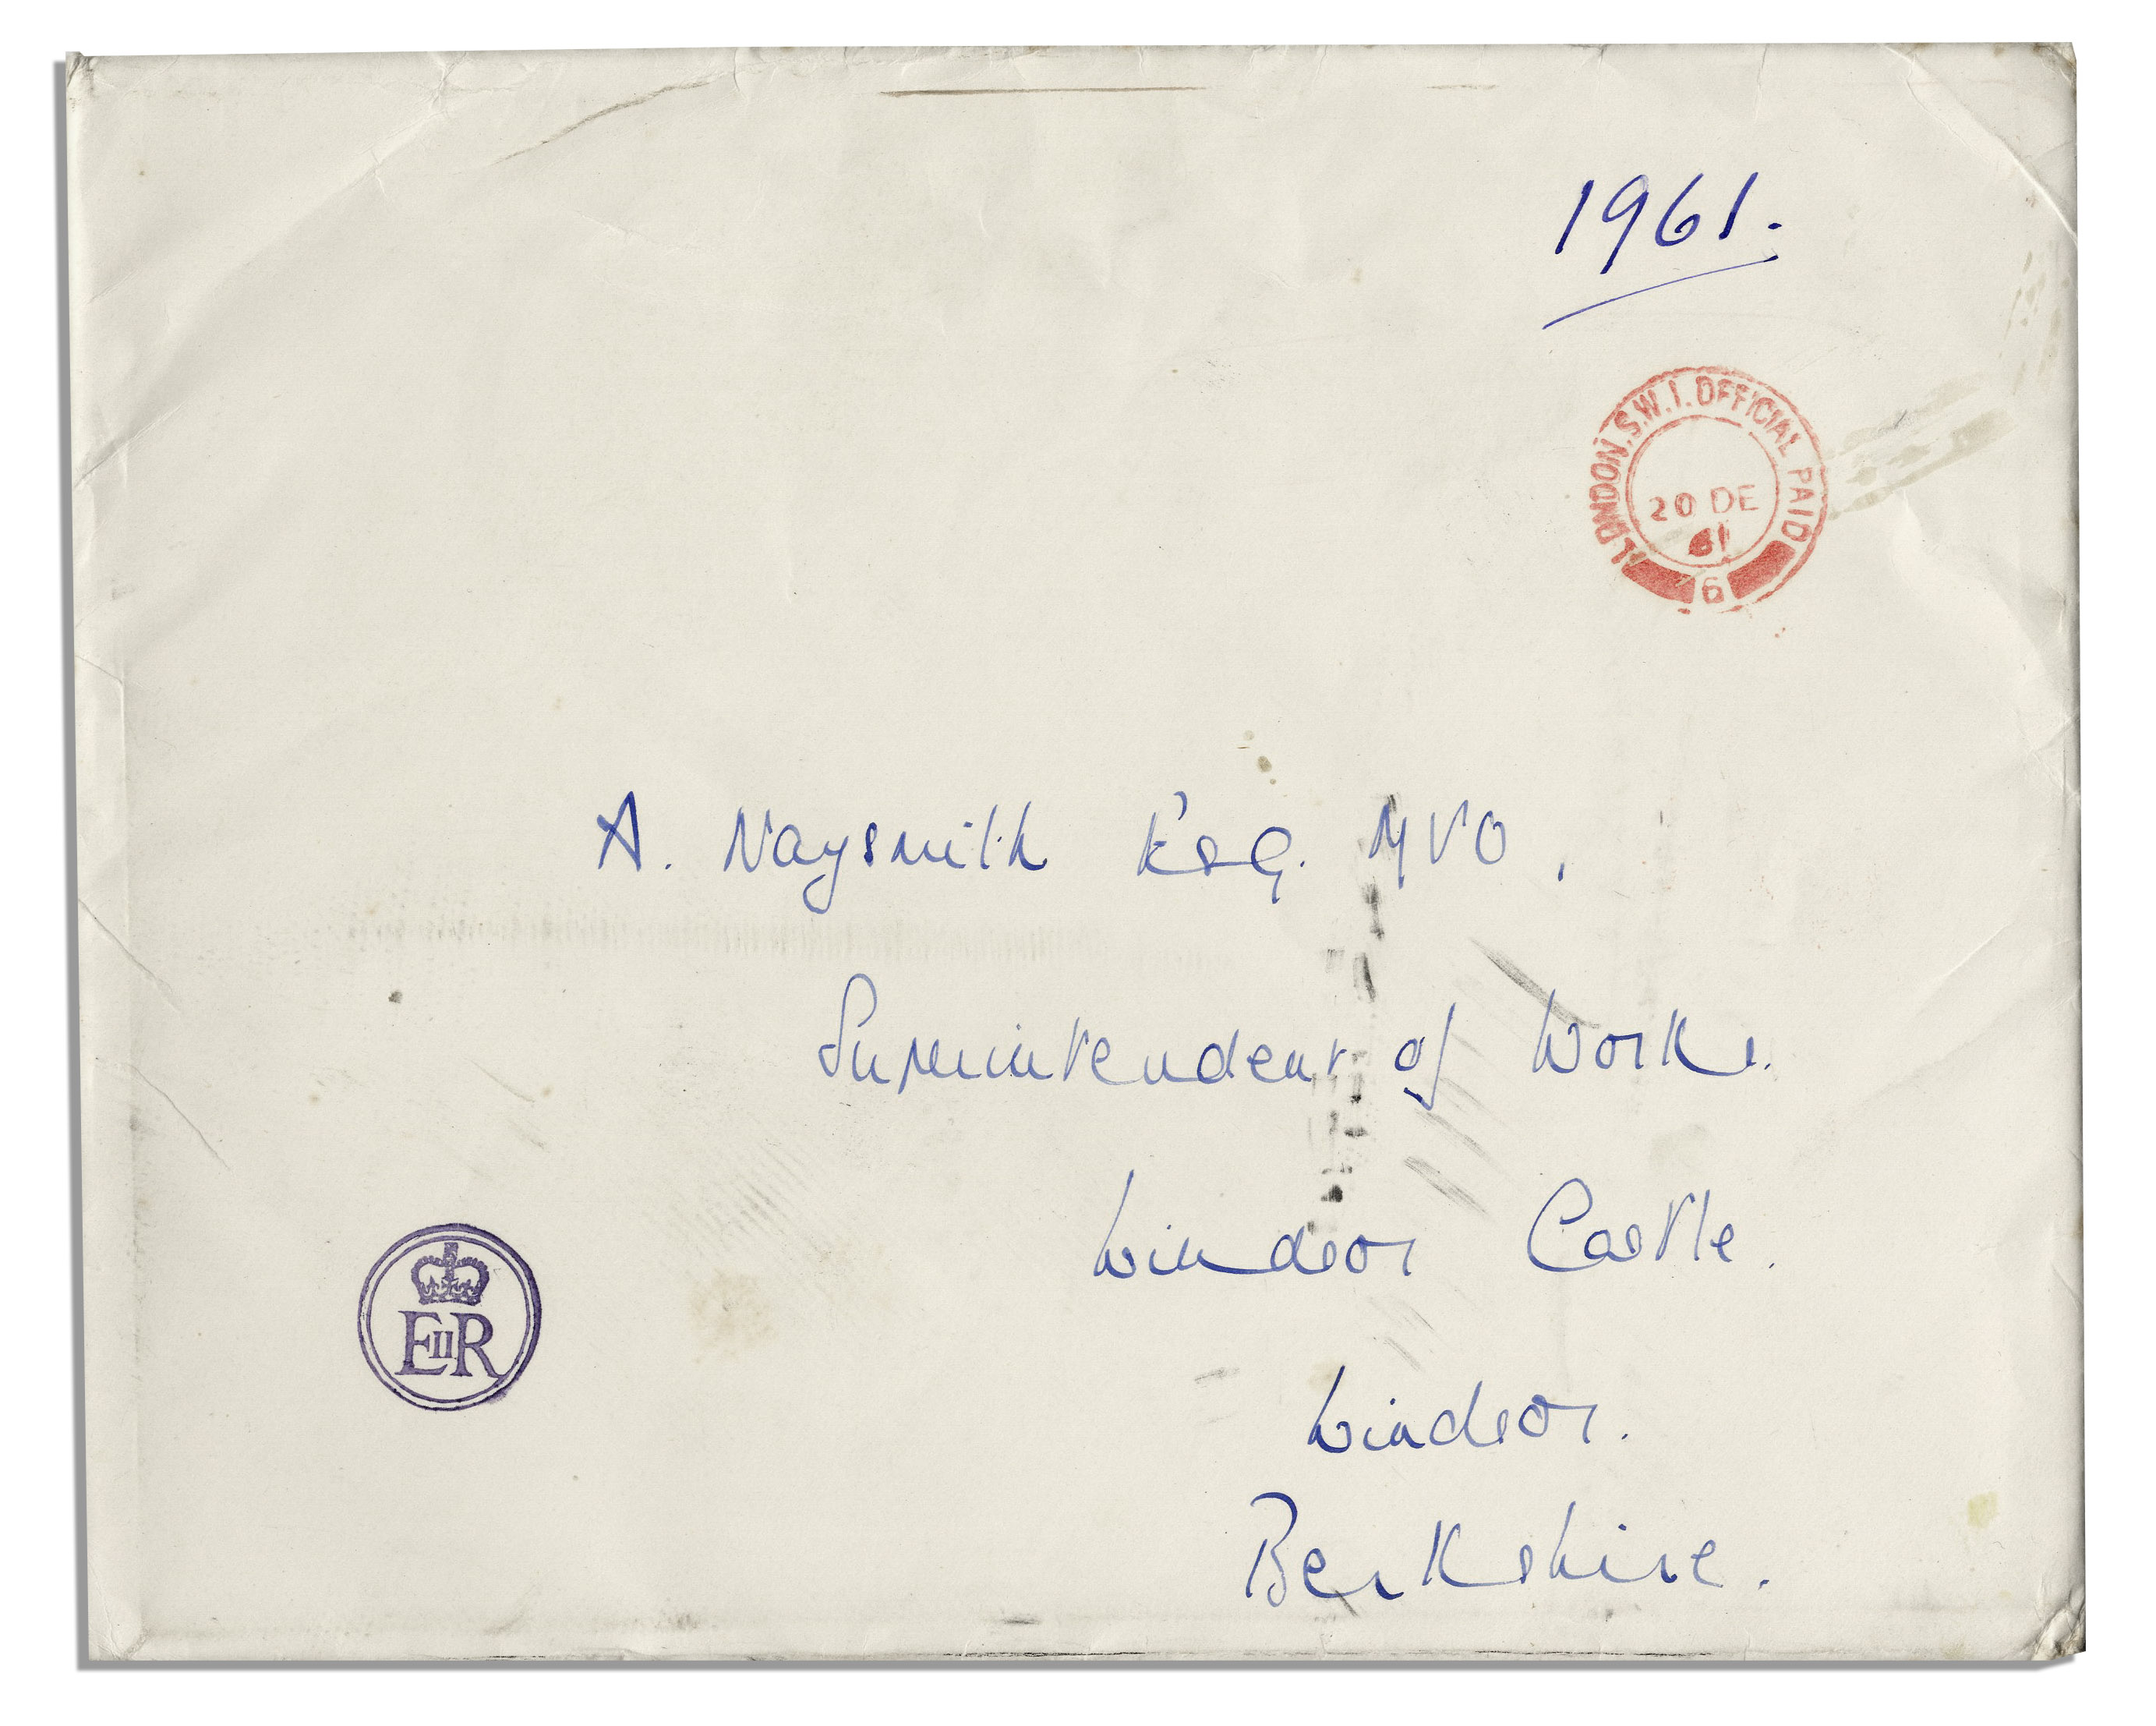 1961.
LONDON.S.W.1. OFFICIAL PAID
20 DE
61
6
A. Naysmith Esq. MVO,
Superintendent of Works.
Windsor Castle.
EIIR
Windsor.
Berkshire.